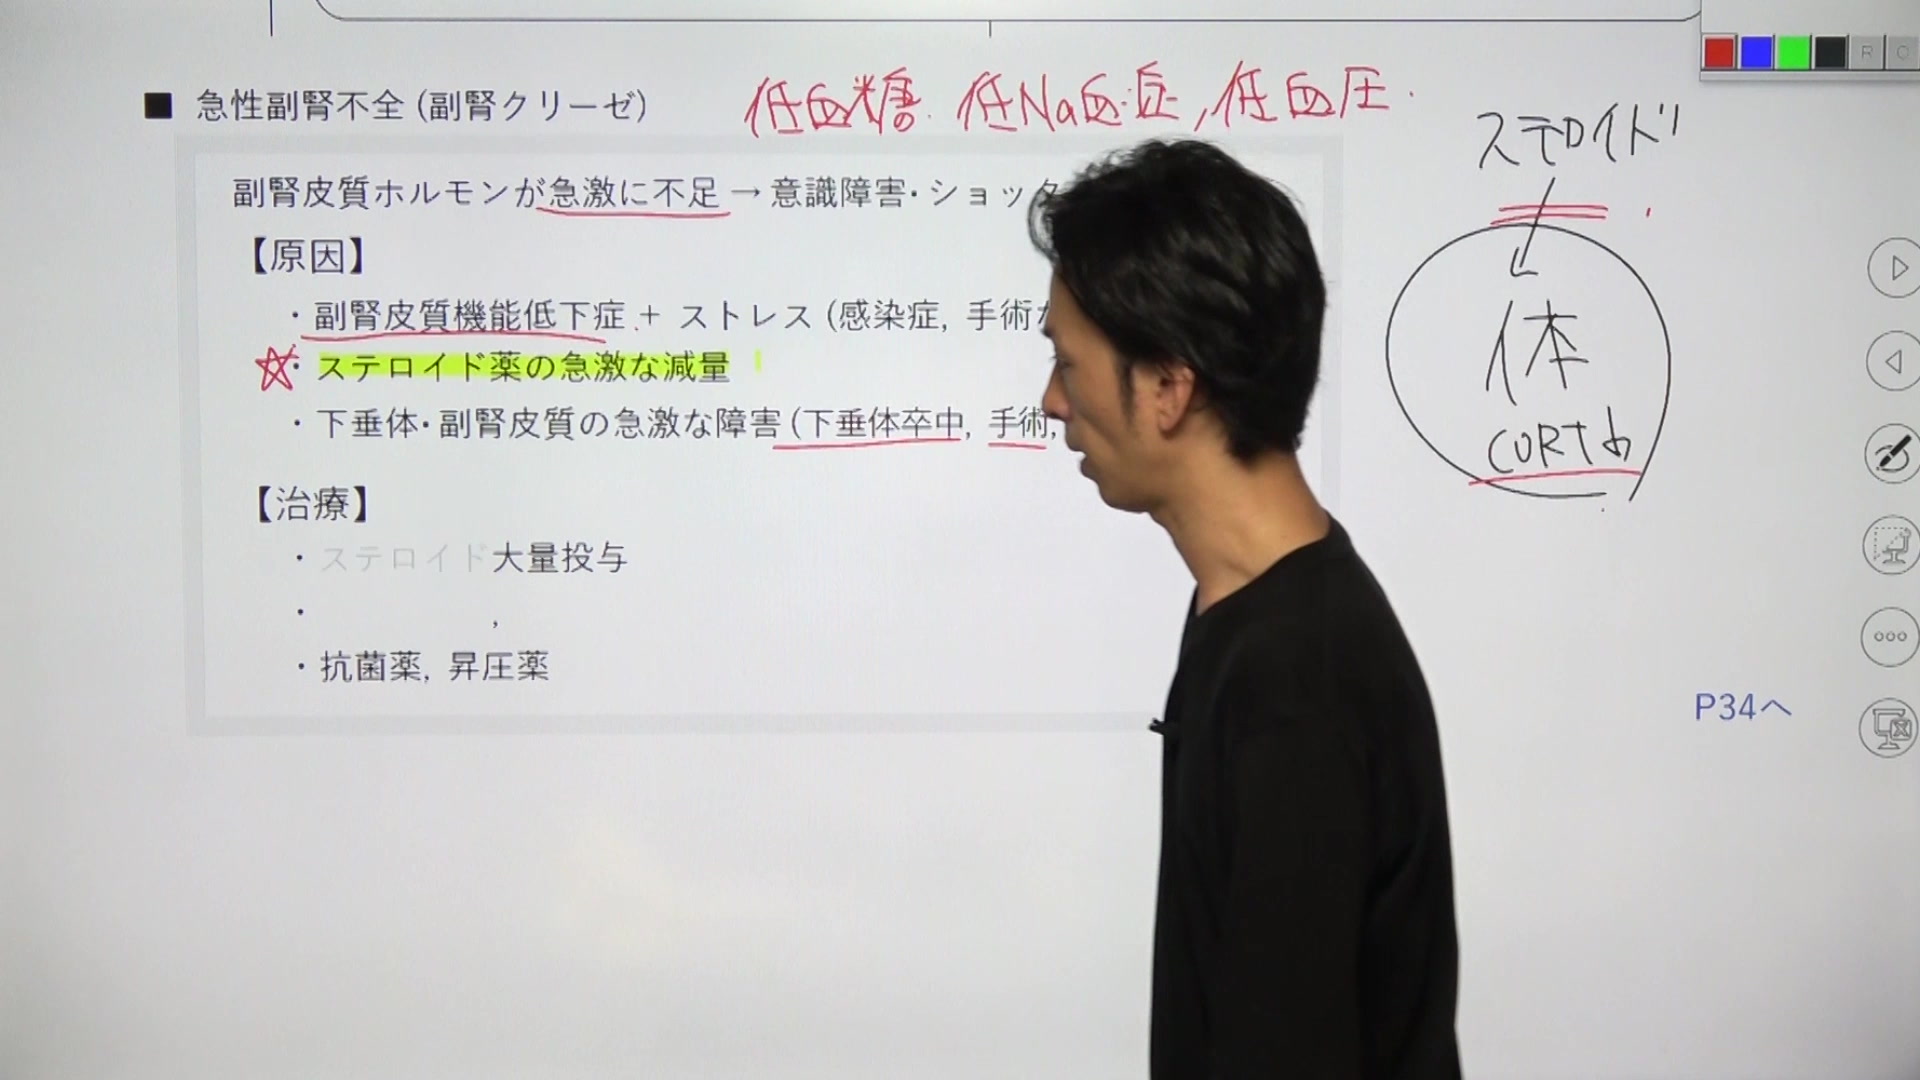 R C
■ 急性副腎不全 (副腎クリーゼ)
低血糖. 低Na血症, 低血圧.
ステロイド
副腎皮質ホルモンが急激に不足 → 意識障害・ショック
【原因】
・副腎皮質機能低下症 + ストレス (感染症, 手術
☆・ステロイド薬の急激な減量
・下垂体・副腎皮質の急激な障害 (下垂体卒中, 手術,
体
CORTめ
【治療】
・ステロイド大量投与
・ ,
・抗菌薬, 昇圧薬
P34へ